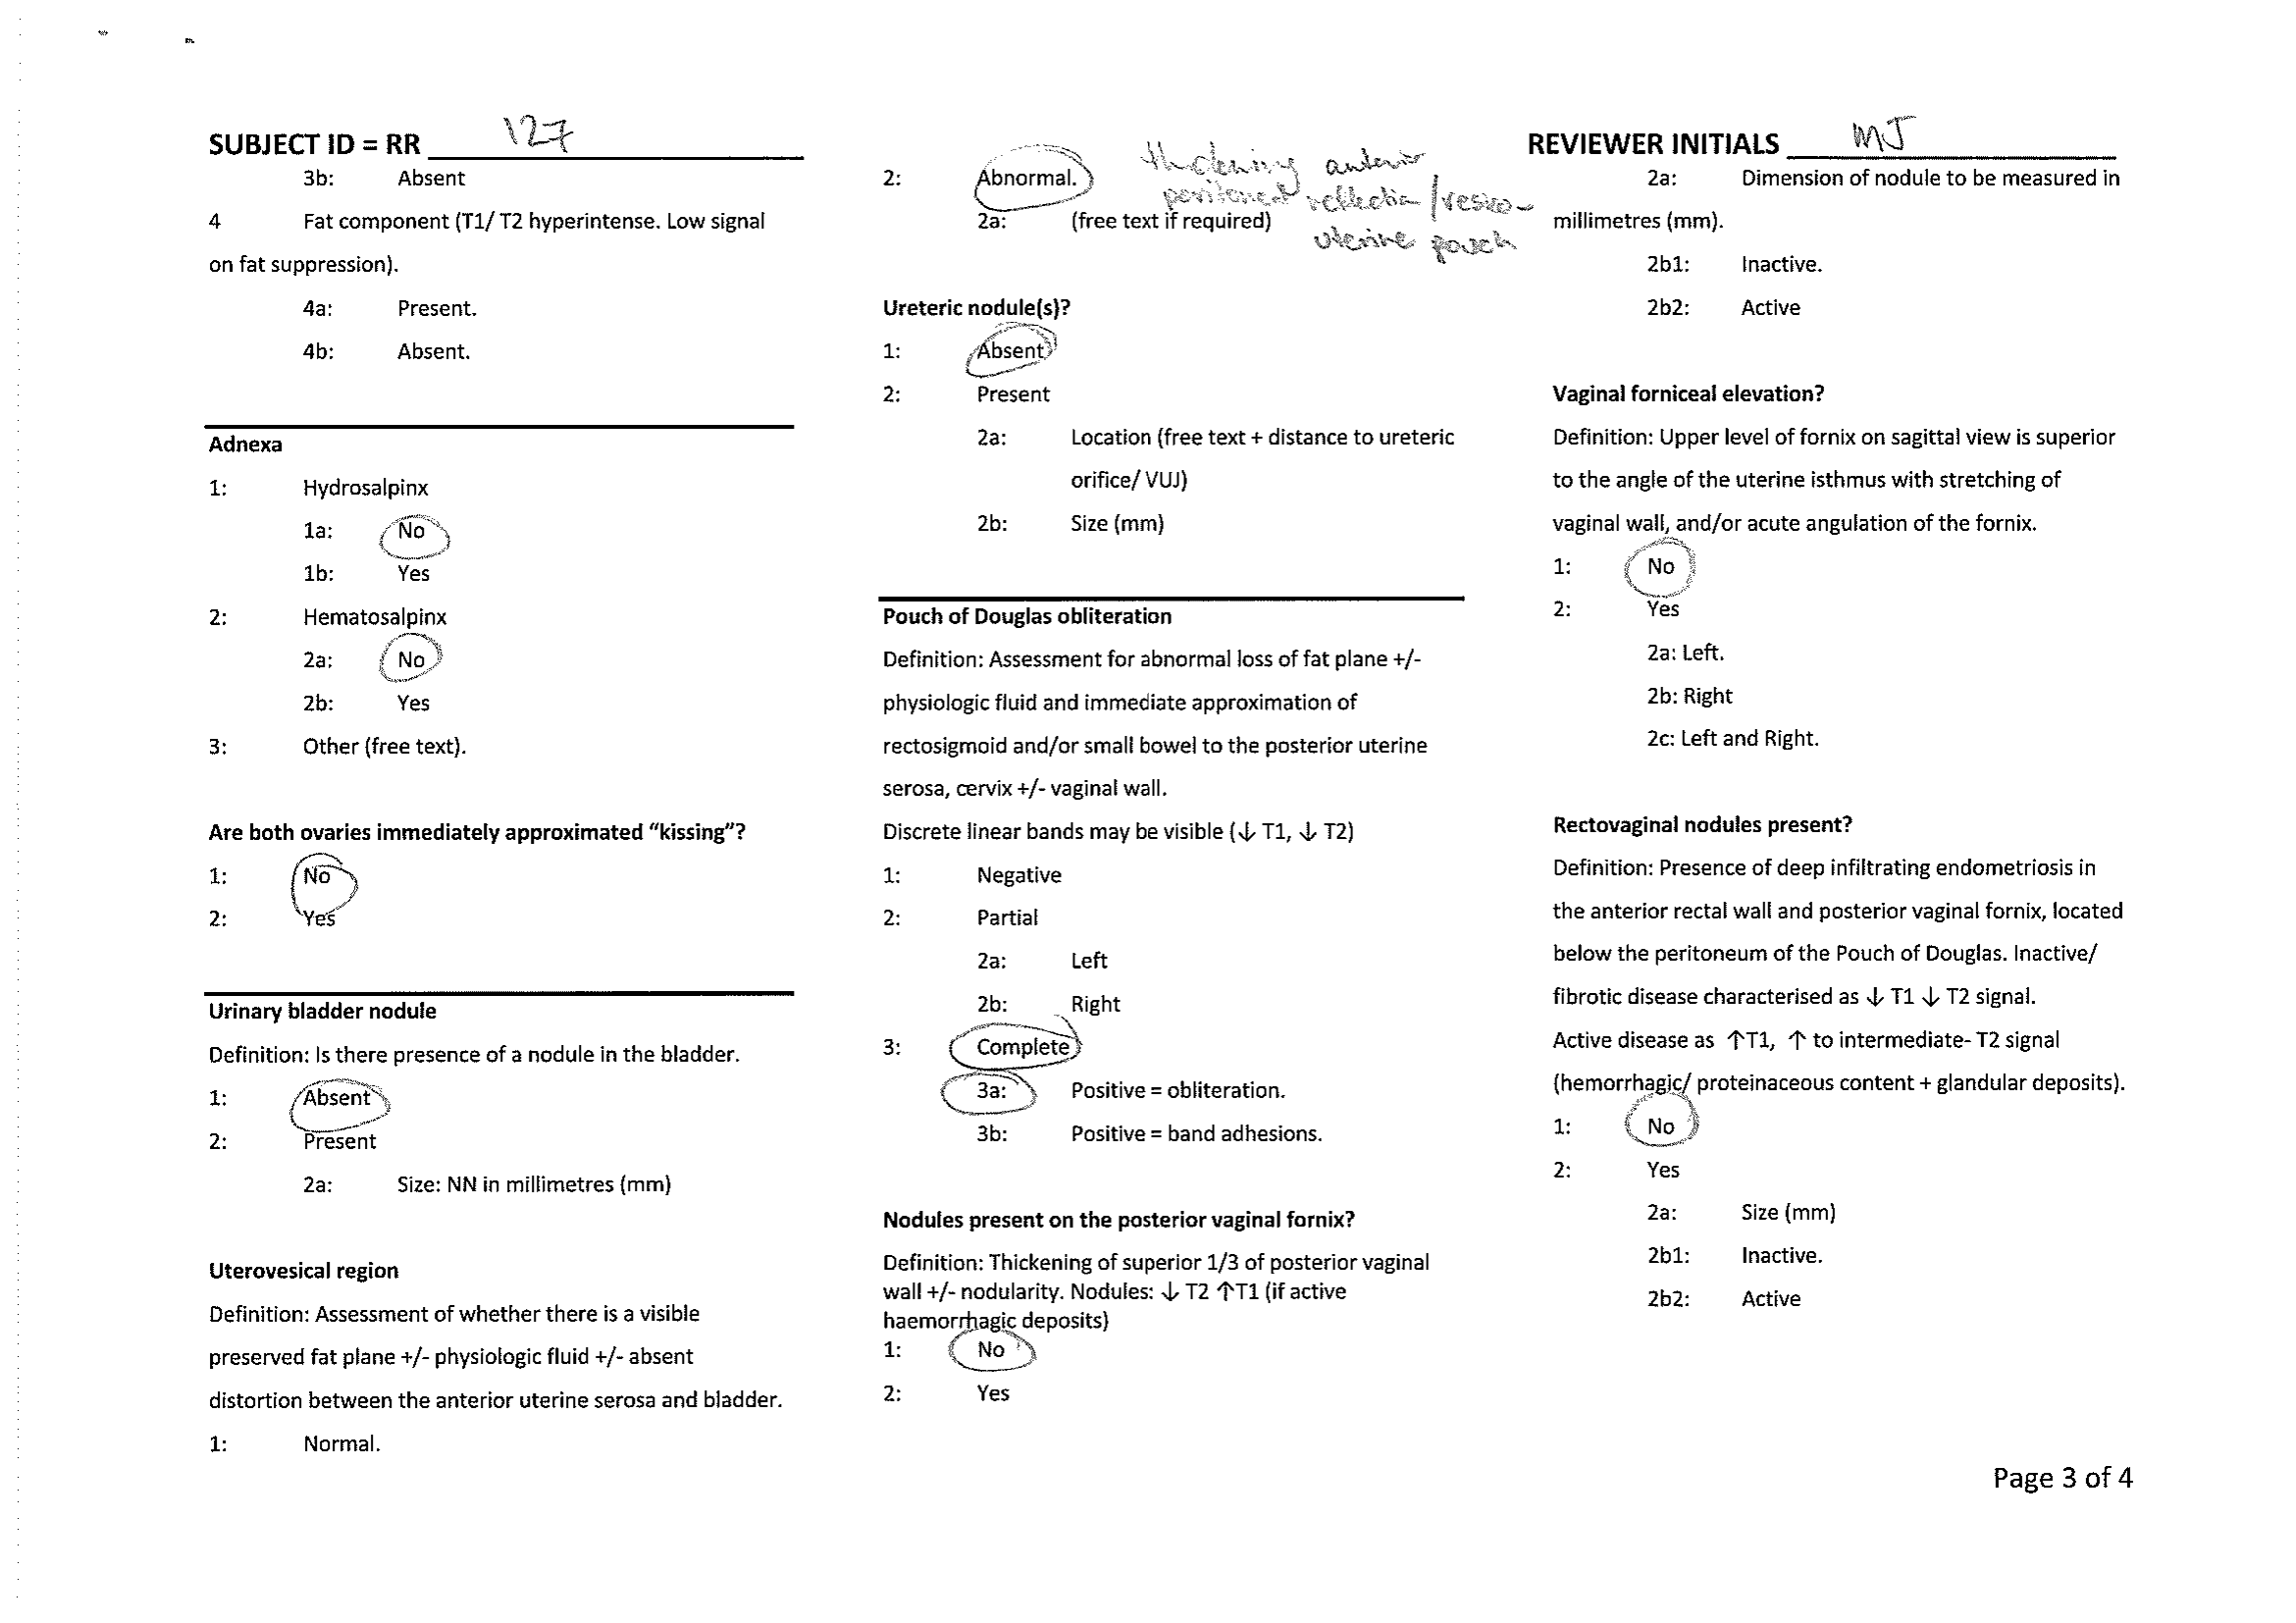 SUBJECT ID = RR 127
3b: Absent
4 Fat component (T1/ T2 hyperintense. Low signal
on fat suppression).
4a: Present.
4b: Absent.
Adnexa
1: Hydrosalpinx
1a: No
1b: Yes
2: Hematosalpinx
2a: No
2b: Yes
3: Other (free text).
Are both ovaries immediately approximated “kissing”?
1: No
2: Yes
Urinary bladder nodule
Definition: Is there presence of a nodule in the bladder.
1: Absent
2: Present
2a: Size: NN in millimetres (mm)
Uterovesical region
Definition: Assessment of whether there is a visible
preserved fat plane +/- physiologic fluid +/- absent
distortion between the anterior uterine serosa and bladder.
1: Normal.
2: Abnormal.
thickening anterior
peritoneal reflection /vesico-
uterine pouch
2a: (free text if required)
Ureteric nodule(s)?
1: Absent
2: Present
2a: Location (free text + distance to ureteric
orifice/ VUJ)
2b: Size (mm)
Pouch of Douglas obliteration
Definition: Assessment for abnormal loss of fat plane +/-
physiologic fluid and immediate approximation of
rectosigmoid and/or small bowel to the posterior uterine
serosa, cervix +/- vaginal wall.
Discrete linear bands may be visible (↓ T1, ↓ T2)
1: Negative
2: Partial
2a: Left
2b: Right
3: Complete
3a: Positive = obliteration.
3b: Positive = band adhesions.
Nodules present on the posterior vaginal fornix?
Definition: Thickening of superior 1/3 of posterior vaginal
wall +/- nodularity. Nodules: ↓ T2 ↑T1 (if active
haemorrhagic deposits)
1: No
2: Yes
REVIEWER INITIALS MJ
2a: Dimension of nodule to be measured in
millimetres (mm).
2b1: Inactive.
2b2: Active
Vaginal forniceal elevation?
Definition: Upper level of fornix on sagittal view is superior
to the angle of the uterine isthmus with stretching of
vaginal wall, and/or acute angulation of the fornix.
1: No
2: Yes
2a: Left.
2b: Right
2c: Left and Right.
Rectovaginal nodules present?
Definition: Presence of deep infiltrating endometriosis in
the anterior rectal wall and posterior vaginal fornix, located
below the peritoneum of the Pouch of Douglas. Inactive/
fibrotic disease characterised as ↓ T1 ↓ T2 signal.
Active disease as ↑T1, ↑ to intermediate- T2 signal
(hemorrhagic/ proteinaceous content + glandular deposits).
1: No
2: Yes
2a: Size (mm)
2b1: Inactive.
2b2: Active
Page 3 of 4